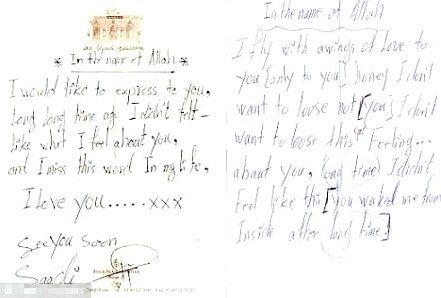 * In the name of Allah *
I would like to express to you,
long long time ago I didn't felt -
like what I feel about you,
and I miss this word In my life,
I love you......xxx
See you soon
Saadi
In the name of Allah
I fly with a wings of love to
you [only to you] honey I don't
want to loose not [you] I don't
want to loose this Feeling...
about you, long time) I didn't
Feel like this [you waked me from
Inside after long time]